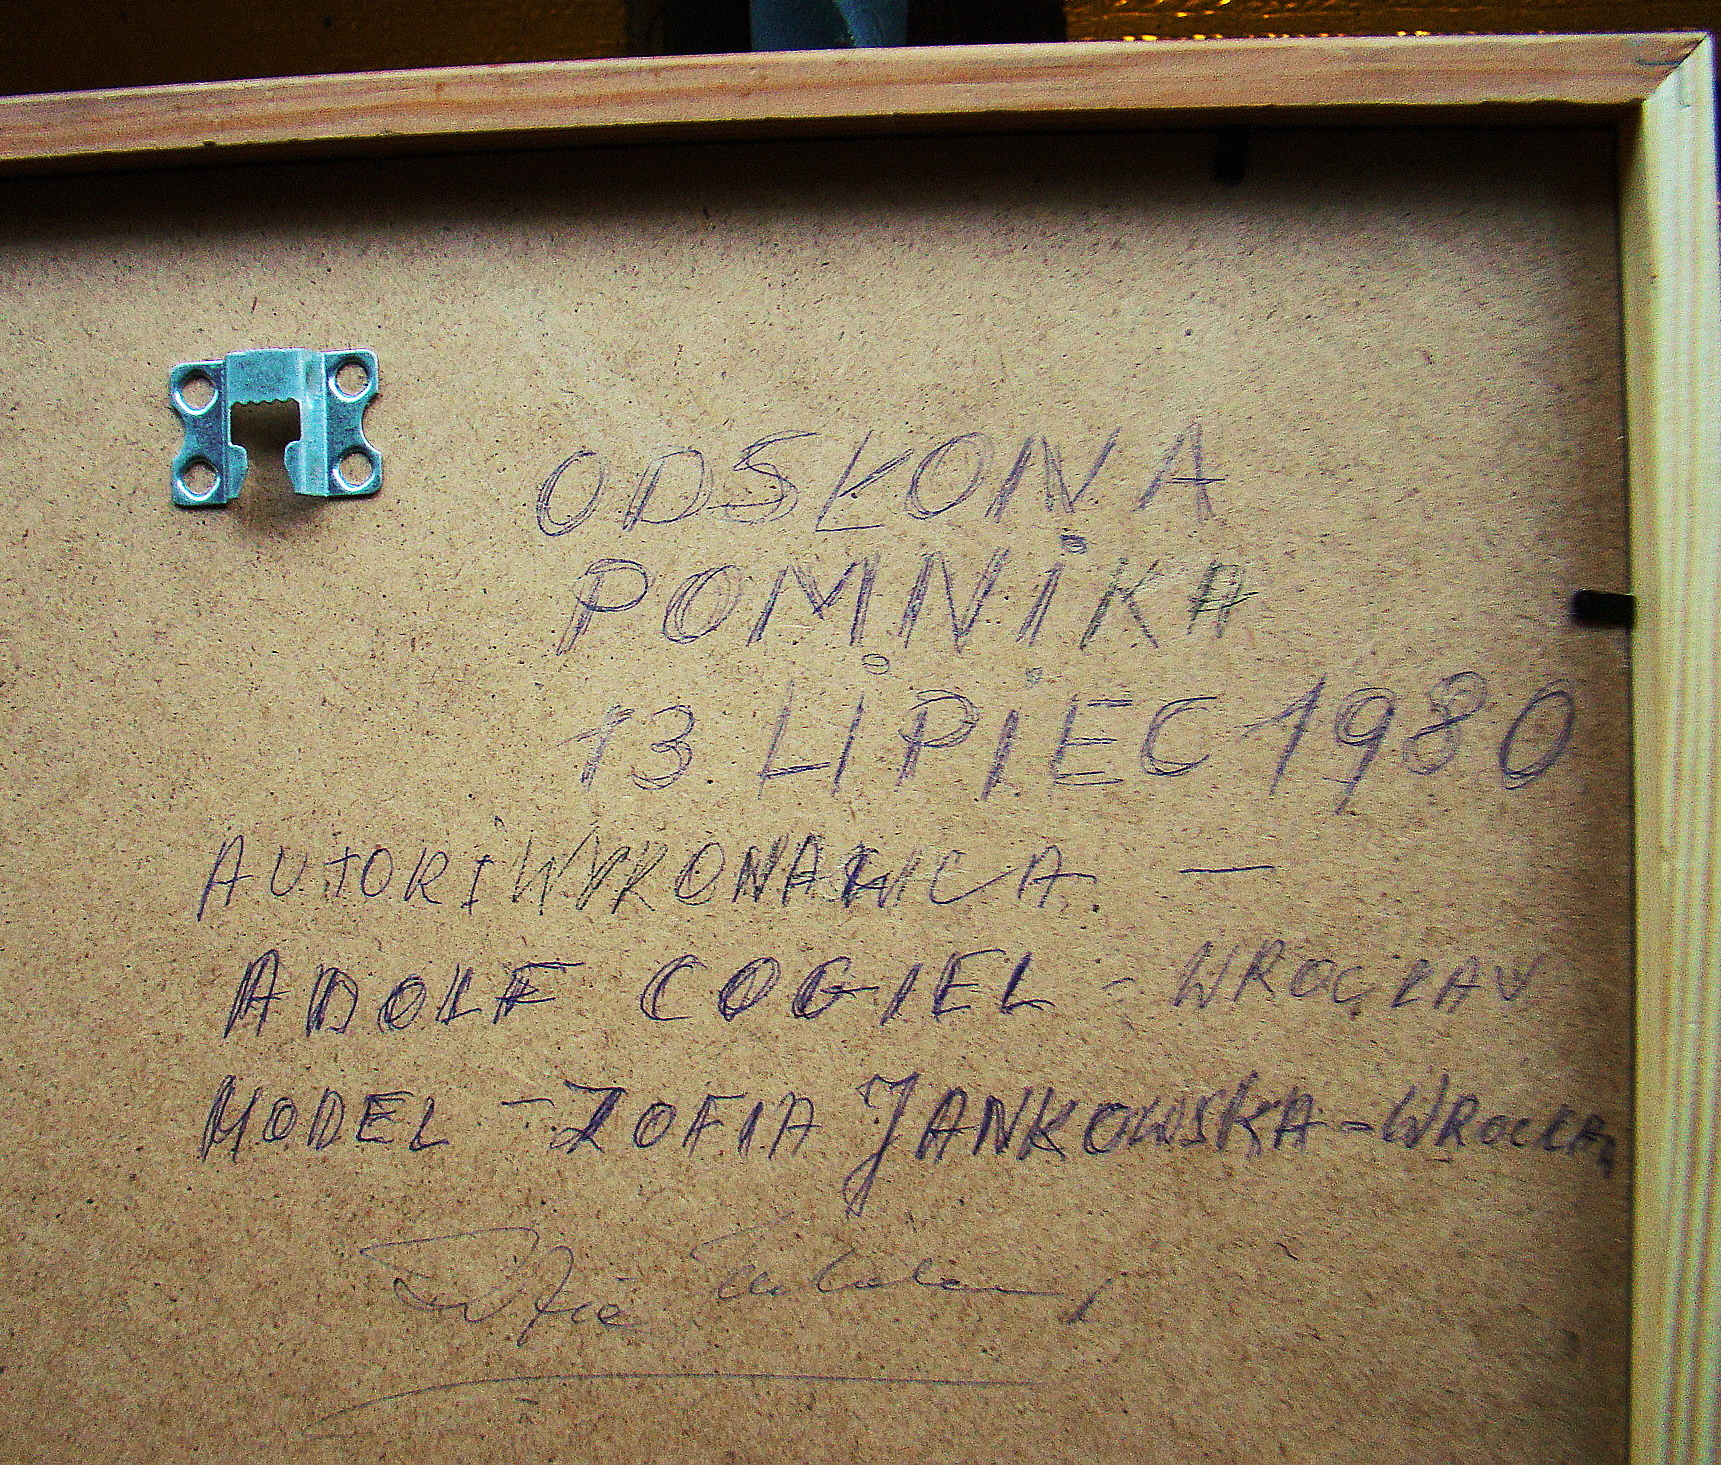 ODSŁONA
POMNIKA
13 LIPIEC 1980
AUTOR I WYKONAWCA. —
ADOLF COGIEL - WROCŁAW
MODEL - ZOFIA JANKOWSKA - WROCŁAW
Zofia